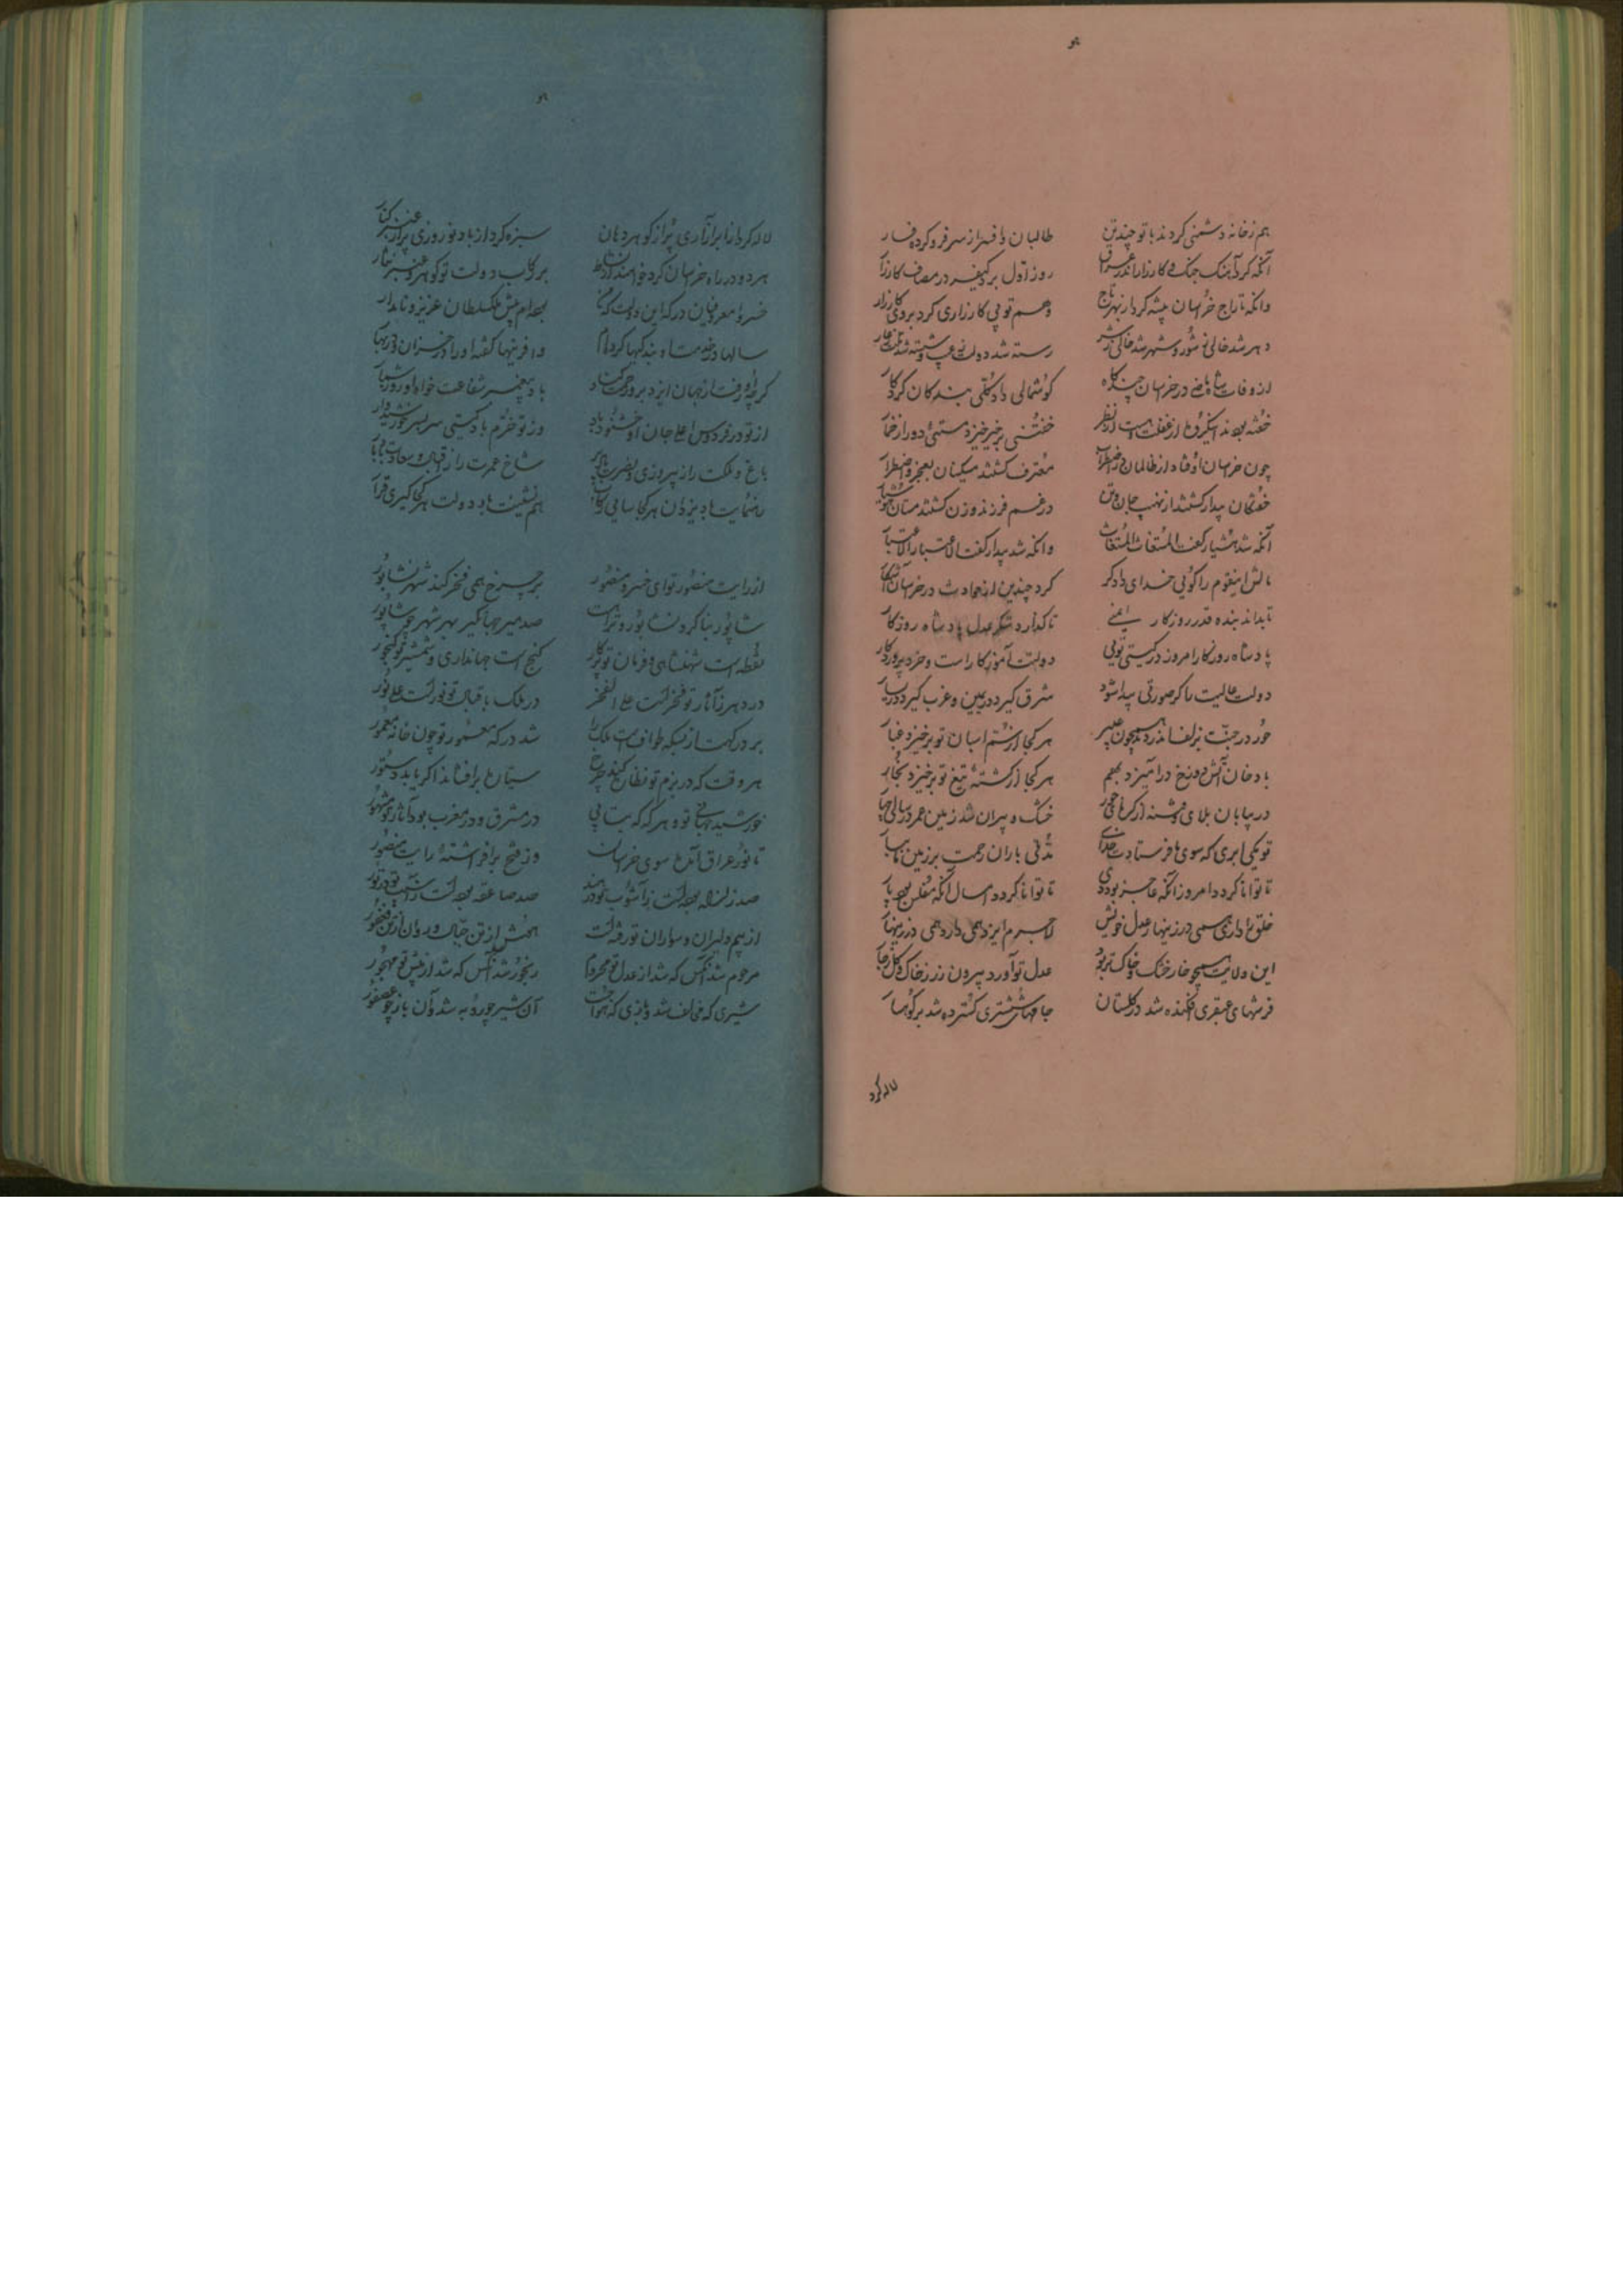 هو
هم ز خانه دشمنی کردند با تو چند تن    طالبان را افسر از سر فرو کرده فسار
آنکه کرد آهنگ جنگ و کارزار اندر عراق    روز اول برد کیفر در مصاف کارزار
وانکه تاراج خراسان پیشه کرد از بهر تاج    وهم تو بی کارزاری کرد بر وی کارزار
دهر شد خالی ز شور و شهر شد خالی ز شر    رسته شد دولت ز عیب و شسته شد ملت ز عار
از وفات شاه ماضی در خراسان چند گاه    گوشمالی داد گفتی بندگان را کردگار
خفته بودند این گروه از غفلت و مست از نظر    خفتنی بی خیر خیز و مستیی دور از خمار
چون خراسان اوفتاد از ظالمان در اضطراب    معترف گشتند مسکینان بعجز و اضطرار
خفتگان بیدار گشتند از نهیب جان و تن    در غم فرزند و زن گشتند مستان هوشیار
آنکه شد هشیار گفت المستغاث المستغاث    وانکه شد بیدار گفت الاعتبار الاعتبار
مالش این قوم را گویی خدای دادگر    کرد چندین از حوادث در خراسان آشکار
تا بداند بنده قدر روزگار ایمنی    تا گذارد شکر عدل پادشاه روزگار
پادشاه روزگار امروز در گیتی تویی    دولت آموزگار است و خرد پروردگار
دولت عالیت را گر صورتی پیدا شود    شرق گیرد در یمین و غرب گیرد در یسار
حور در جنت بزلف اندر دمد همچون عبیر    هر کجا از سم اسبان تو برخیزد غبار
با دخان آتش دوزخ درآمیزد بهم    هر کجا از کشته تیغ تو برخیزد بخار
در بیابان بلای تشنه از گرمای جور    خشک و پیران شد زمین عمر در سالی چهار
تو یکی ابری که سوی ما فرستادت خدای    تدنی باران رحمت بر زمین ما ببار
تا توانا گردد امروز آنکه عاجز بود دی    تا توانا گردد امسال آنکه مفلس بود پار
خلق را داری همی در زینهار عدل خویش    لاجرم ایزد همی دارد همی در زینهار
این ولایت همچو خار خشک و خاک تر بود    عدل تو آورد بیرون زر ز خاک و گل ز خار
فرشهای عبقری افکنده شد در گلستان    جامهای ششتری گسترده شد بر کوهسار
لاله کرد
هو
لاله کرد از ابر آزاری پر از گوهر دهان    سبزه کرد از باد نوروزی پر از عنبر کنار
هر دو در راه خراسان کرد خواهند از نشاط    بر رکاب دولت تو گوهر و عنبر نثار
خسروا معروفیان درگه این دولت که من    بوده‌ام پیش ملک سلطان عزیز و نامدار
سالها در خدمت او بندگیها کرده‌ام    وافرینها گفته او را در خزان و در بهار
گرچه او رفت از جهان ایزد برو رحمت کناد    باد پیغمبر شفاعت خواه او روز شمار
از تو در فردوس اعلی جان او خشنود باد    وز تو خرم باد گیتی سر بسر خورشیدوار
باغ ملکت را ز پیروزی و نصرت باد بر    شاخ عمرت را ز اقبال و سعادت باد بار
رهنمایت باد یزدان هر کجا سایی رکاب    هم‌نشینت باد دولت هر کجا گیری قرار
از رایت منصور تو ای خسرو منصور    بر چرخ همی فخر کند شهر نشابور
شاپور بنا کرد نشابور و تراست    صد میر جهانگیر بهر شهر چو شاپور
نقطه است شهنشاهی و فرمان تو پرگار    گنج است جهانداری و شمشیر تو گنجور
در دهر ز آثار تو فخر است علی الفخر    در ملک باقبال تو نور است علی نور
بر درگهت از بسکه طواف است ملک را    شد درگه معمور تو چون خانه معمور
هر وقت که در بزم تو نظاره کند چرخ    سیاره برافشاند اگر یابد دستور
خورشید جهانی تو و هر گه که بتابی    در مشرق و در مغرب بود آثار تو مشهور
تا نور عراق آمد سوی خراسان    وز فتح برافراشته رایت منصور
صد زلزله بوده است ز آشوب تو در هند    صد صاعقه بوده است ز آسیب تو در تور
از بیم دلیران و سواران تو رفته است    هش از تن جیپال و روان از تن فغفور
مرحوم شد آنکس که شد از عدل تو محروم    رنجور شد آنکس که شد از پیش تو مهجور
شیری که مخالف شد و بازی که هوا جست    آن شیر چو روبه شد و آن باز چو عصفور